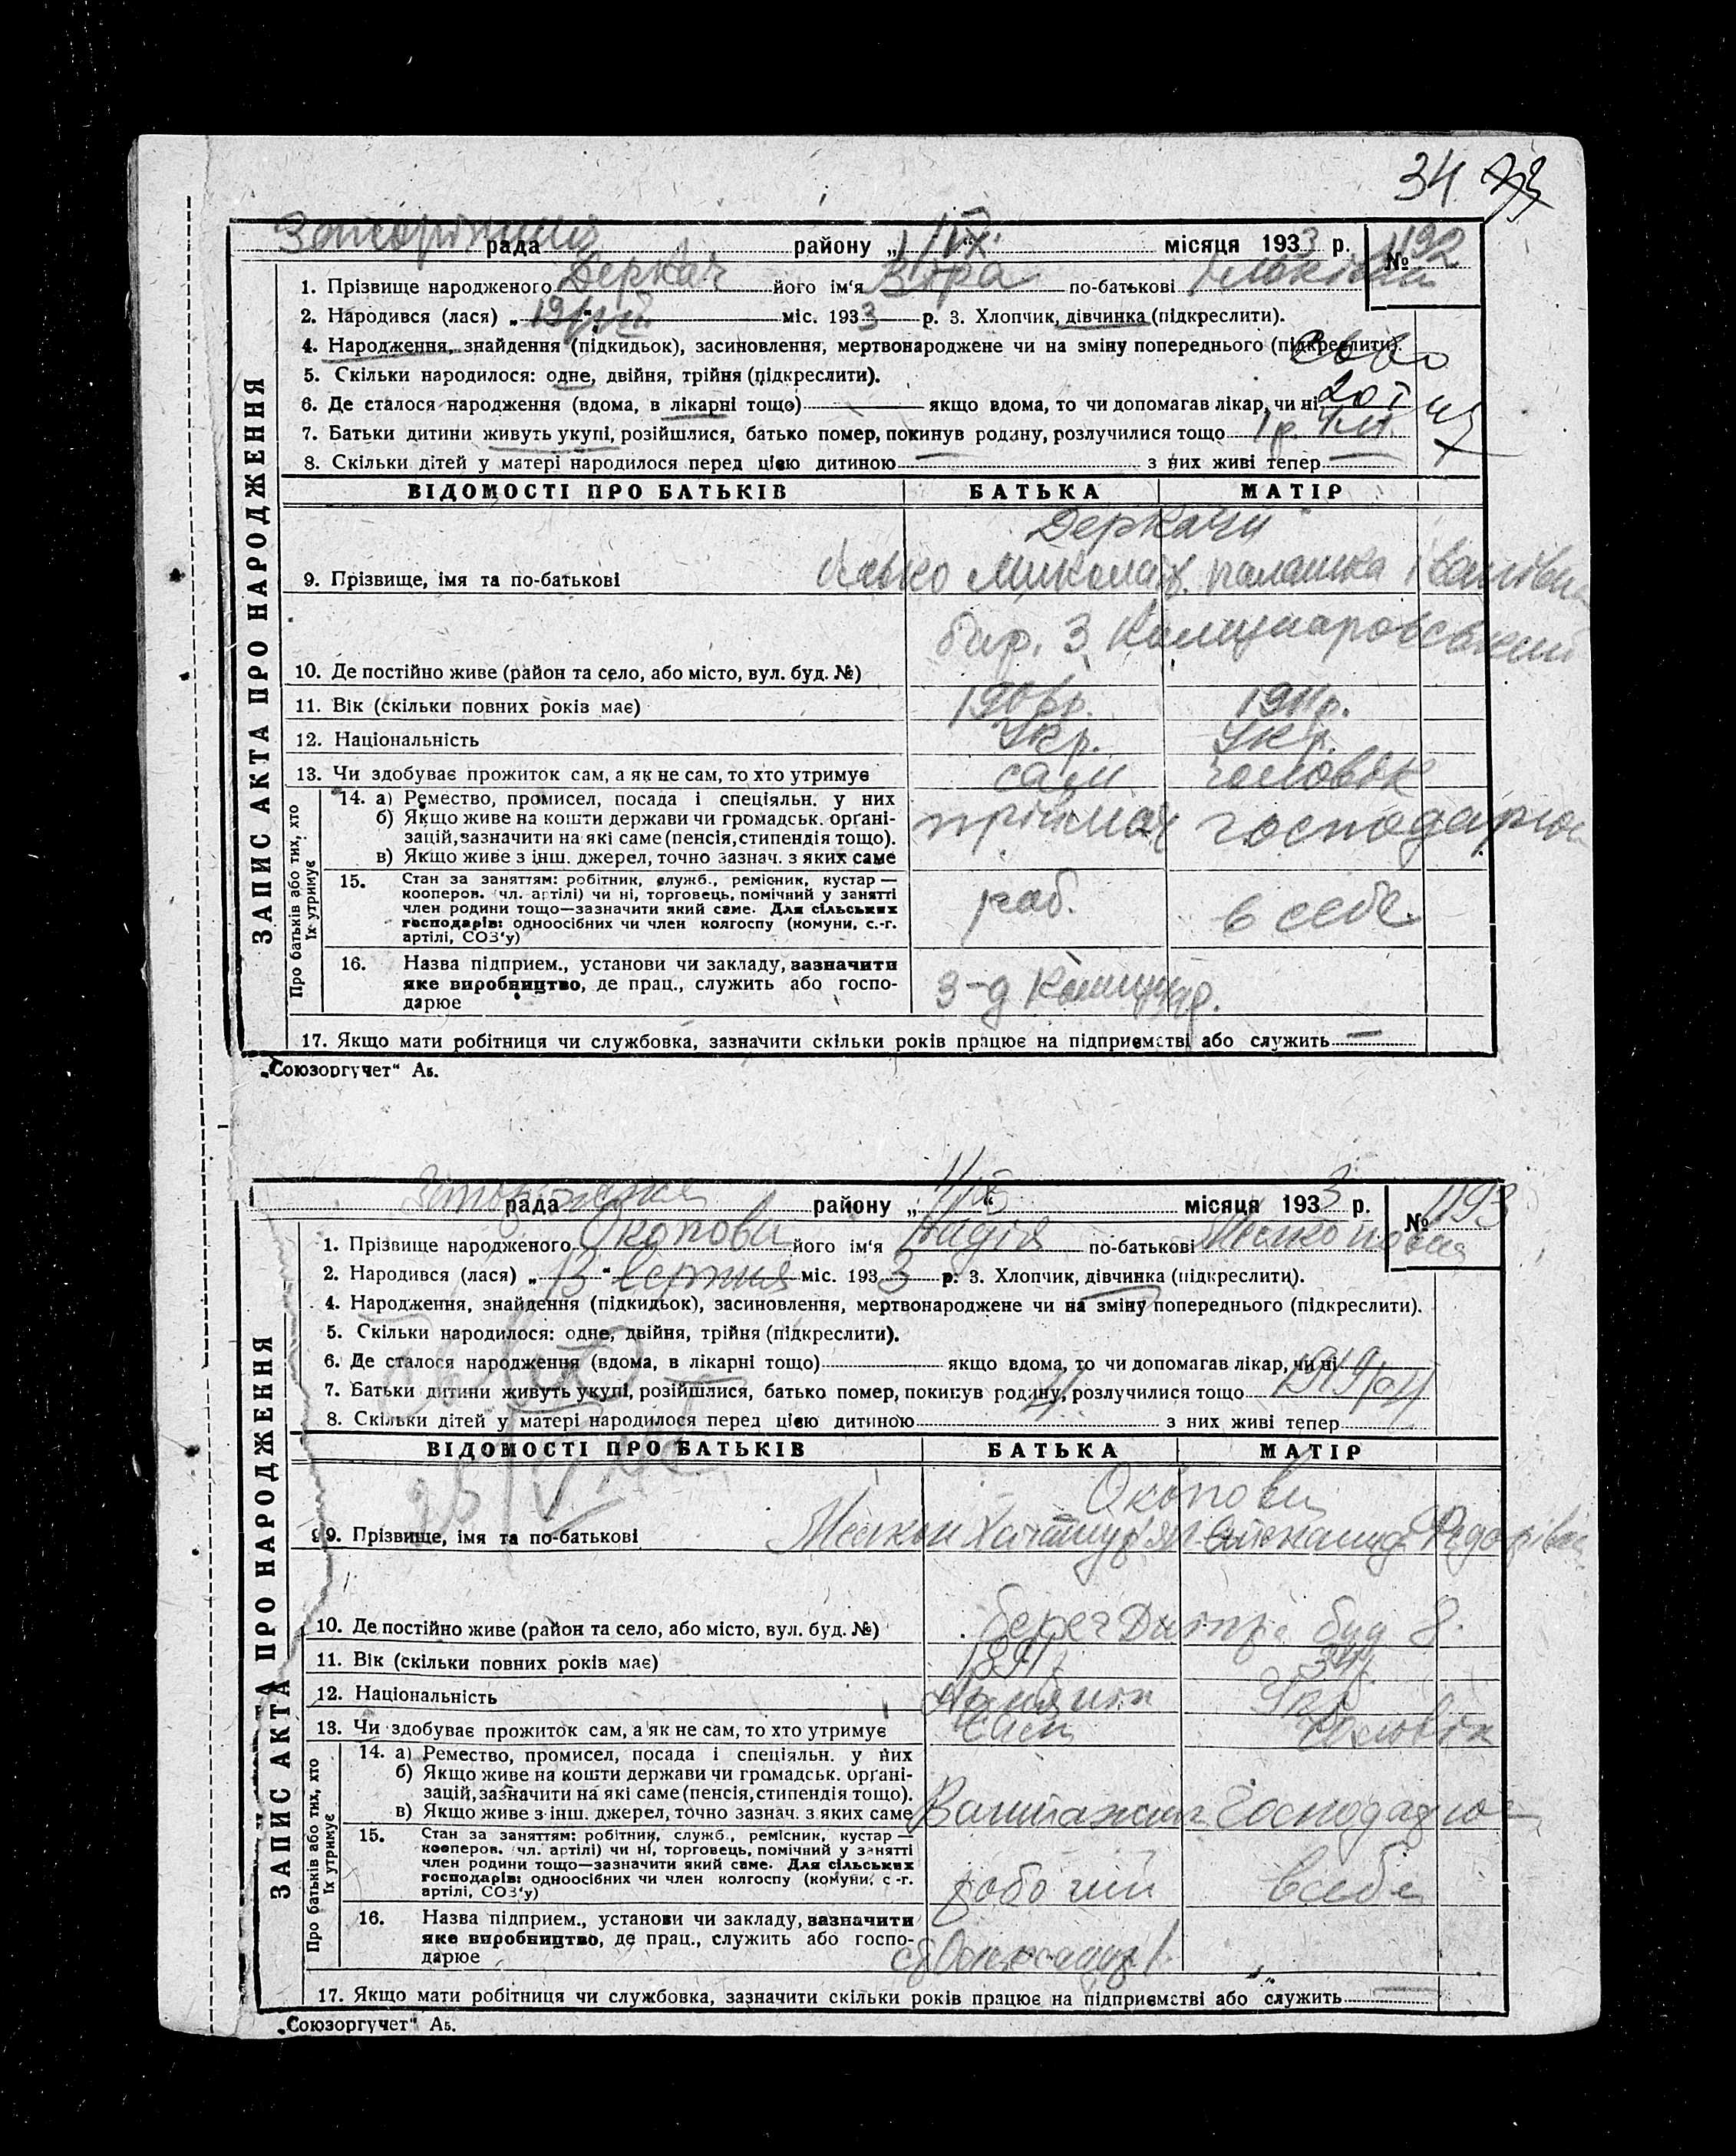 34
рада району „ 1/IX “ місяця 1933 р. № 1192
1. Прізвище народженого Деркач його ім‘я Віра по-батькові
2. Народився (лася) „ 19 міс. 1933 р. 3. Хлопчик, дівчинка (підкреслити).
4. Народження, знайдення (підкидьок), засиновлення, мертвонароджене чи на зміну попереднього (підкреслити).
5. Скільки народилося: одне, двійня, трійня (підкреслити).
6. Де сталося народження (вдома, в лікарні тощо) якщо вдома, то чи допомагав лікар, чи ні
7. Батьки дитини живуть укупі, розійшлися, батько помер, покинув родину, розлучилися тощо 1 р.
8. Скільки дітей у матері народилося перед цією дитиною з них живі тепер
ЗАПИС АКТА ПРО НАРОДЖЕННЯ
ВІДОМОСТІ ПРО БАТЬКІВ БАТЬКА МАТІР
Деркачи
9. Прізвище, імя та по-батькові Микола палашка Іванівна
бар. 3
10. Де постійно живе (район та село, або місто, вул. буд. №)
11. Вік (скільки повних років має) 1906р. 1911р.
12. Національність Укр. Укр.
13. Чи здобуває прожиток сам, а як не сам, то хто утримує сам чоловік
Про батьків або тих, хто їх утримує
14. а) Ремество, промисел, посада і спеціяльн. у них
б) Якщо живе на кошти держави чи громадськ. орґані-
зацій, зазначити на які саме (пенсія, стипендія тощо). приймач господарює
в) Якщо живе з інш. джерел, точно зазнач. з яких саме
15. Стан за заняттям: робітник, служб., ремісник, кустар —
кооперов. (чл. артілі) чи ні, торговець, помічний у занятті
член родини тощо—зазначити який саме. Для сільських
господарів: одноосібних чи член колгоспу (комуни, с.-г.
артілі, СОЗ‘у) раб. в себе
16. Назва підприєм., установи чи закладу, зазначити
яке виробництво, де прац., служить або госпо-
дарює з-д Комунар.
17. Якщо мати робітниця чи службовка, зазначити скільки років працює на підприємстві або служить —
„Союзоргучет“ А5.
рада району „ 1/IX “ місяця 1933 р. № 1193
1. Прізвище народженого Окопова його ім‘я Надія по-батькові
2. Народився (лася) „ 13 “ серпня міс. 1933 р. 3. Хлопчик, дівчинка (підкреслити).
4. Народження, знайдення (підкидьок), засиновлення, мертвонароджене чи на зміну попереднього (підкреслити).
5. Скільки народилося: одне, двійня, трійня (підкреслити).
6. Де сталося народження (вдома, в лікарні тощо) якщо вдома, то чи допомагав лікар, чи ні
7. Батьки дитини живуть укупі, розійшлися, батько помер, покинув родину, розлучилися тощо
8. Скільки дітей у матері народилося перед цією дитиною з них живі тепер
ЗАПИС АКТА ПРО НАРОДЖЕННЯ
ВІДОМОСТІ ПРО БАТЬКІВ БАТЬКА МАТІР
Окопови
9. Прізвище, імя та по-батькові Федорівна
10. Де постійно живе (район та село, або місто, вул. буд. №) берег Дніпра буд 8.
11. Вік (скільки повних років має)
12. Національність Укр
13. Чи здобуває прожиток сам, а як не сам, то хто утримує сам чоловік
Про батьків або тих, хто їх утримує
14. а) Ремество, промисел, посада і спеціяльн. у них
б) Якщо живе на кошти держави чи громадськ. орґані-
зацій, зазначити на які саме (пенсія, стипендія тощо).
в) Якщо живе з інш. джерел, точно зазнач. з яких саме Господарює
15. Стан за заняттям: робітник, служб., ремісник, кустар —
кооперов. (чл. артілі) чи ні, торговець, помічний у занятті
член родини тощо—зазначити який саме. Для сільських
господарів: одноосібних чи член колгоспу (комуни, с.-г.
артілі, СОЗ‘у) робочий в себе
16. Назва підприєм., установи чи закладу, зазначити
яке виробництво, де прац., служить або госпо-
дарює
17. Якщо мати робітниця чи службовка, зазначити скільки років працює на підприємстві або служить —
„Союзоргучет“ А5.